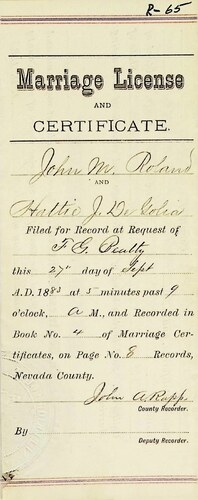 R-65
Marriage License
AND
CERTIFICATE.
John M. Roland
AND
Hattie J. De Golia
Filed for Record at Request of
F. G. Beatty
this 27" day of Sept
A.D. 1883 at 5 minutes past 9
o'clock, A M., and Recorded in
Book No. 4 of Marriage Cer-
tificates, on Page No. 8 Records,
Nevada County.
John A. Rapp
County Recorder.
By
Deputy Recorder.